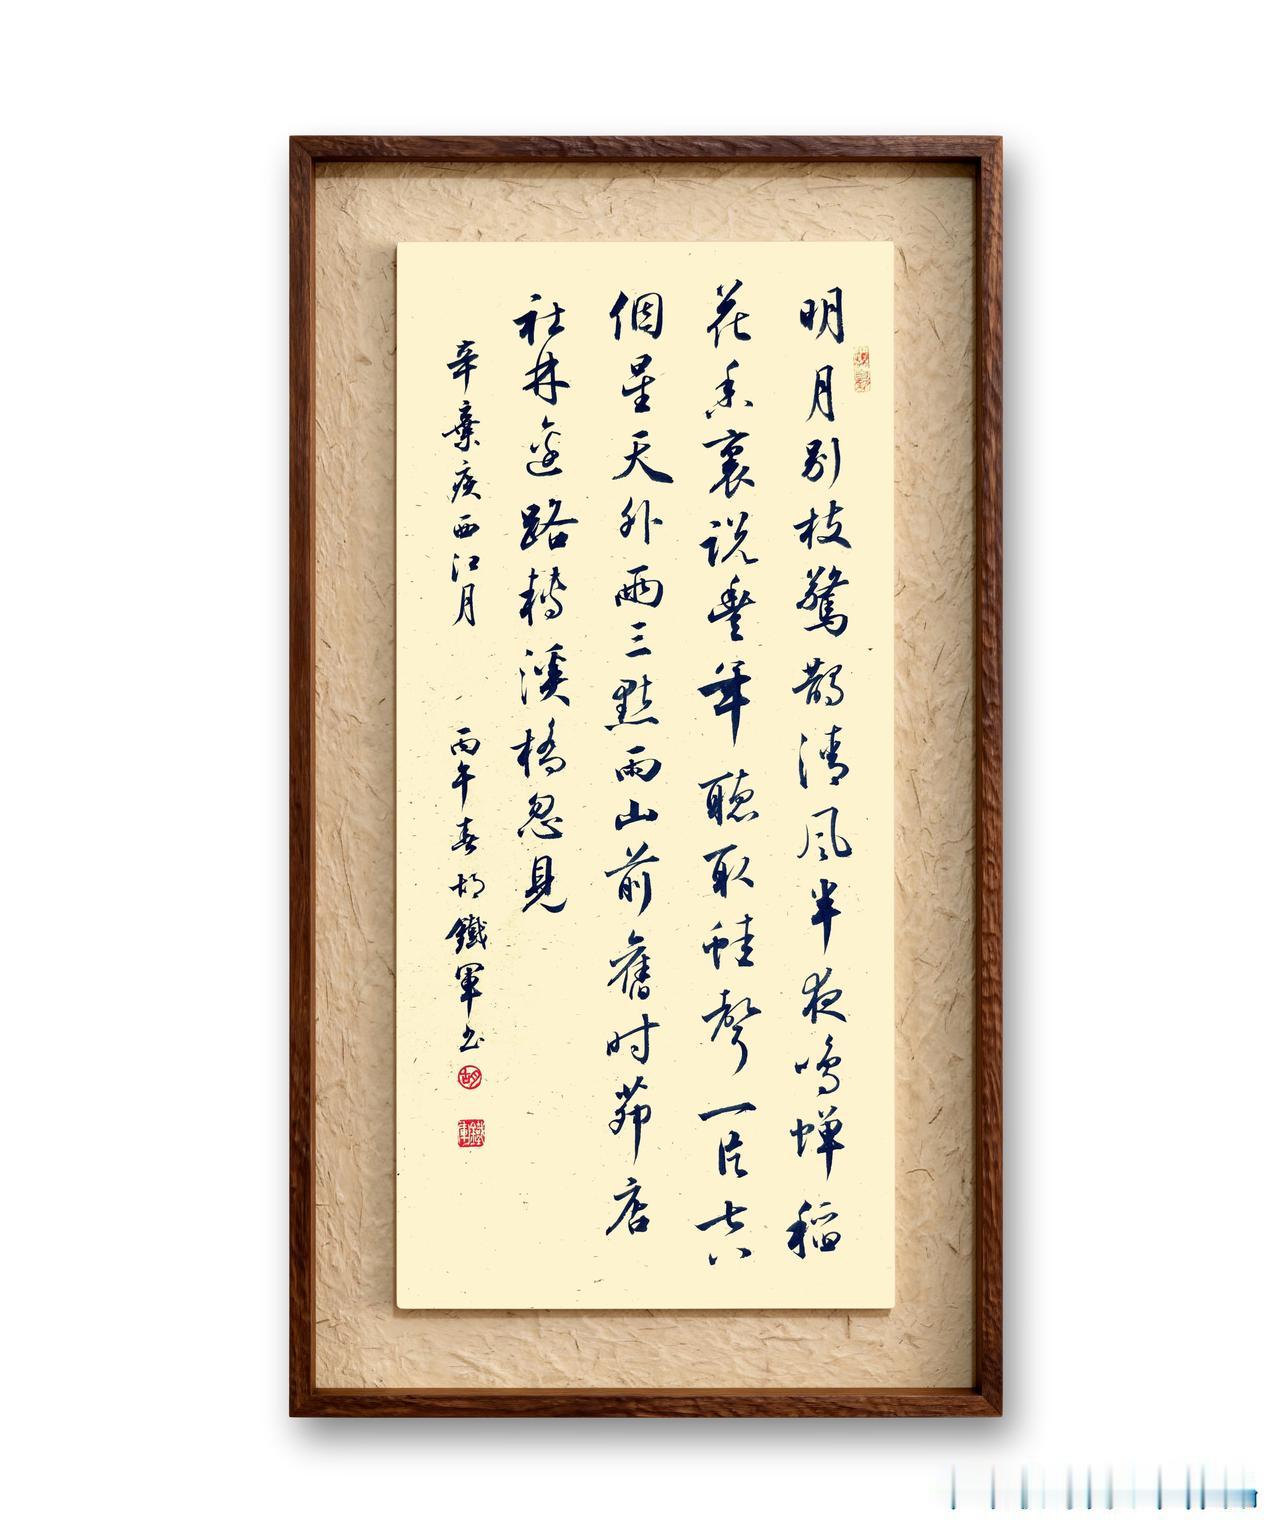 明月别枝驚鵲清風半夜鳴蝉稻
花香裏説豐年聽取蛙聲一片七八
個星天外兩三點雨山前舊时茆店
社林邊路轉溪橋忽見
辛棄疾西江月
丙午春胡鐵軍书
胡
鐵軍